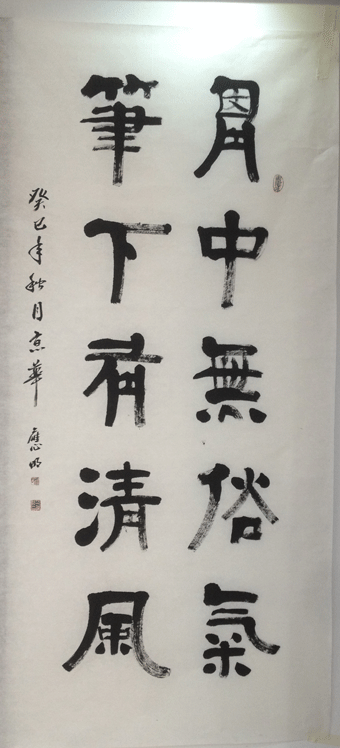 胷中無俗氣
筆下有清風
癸巳年秋月京華
應明